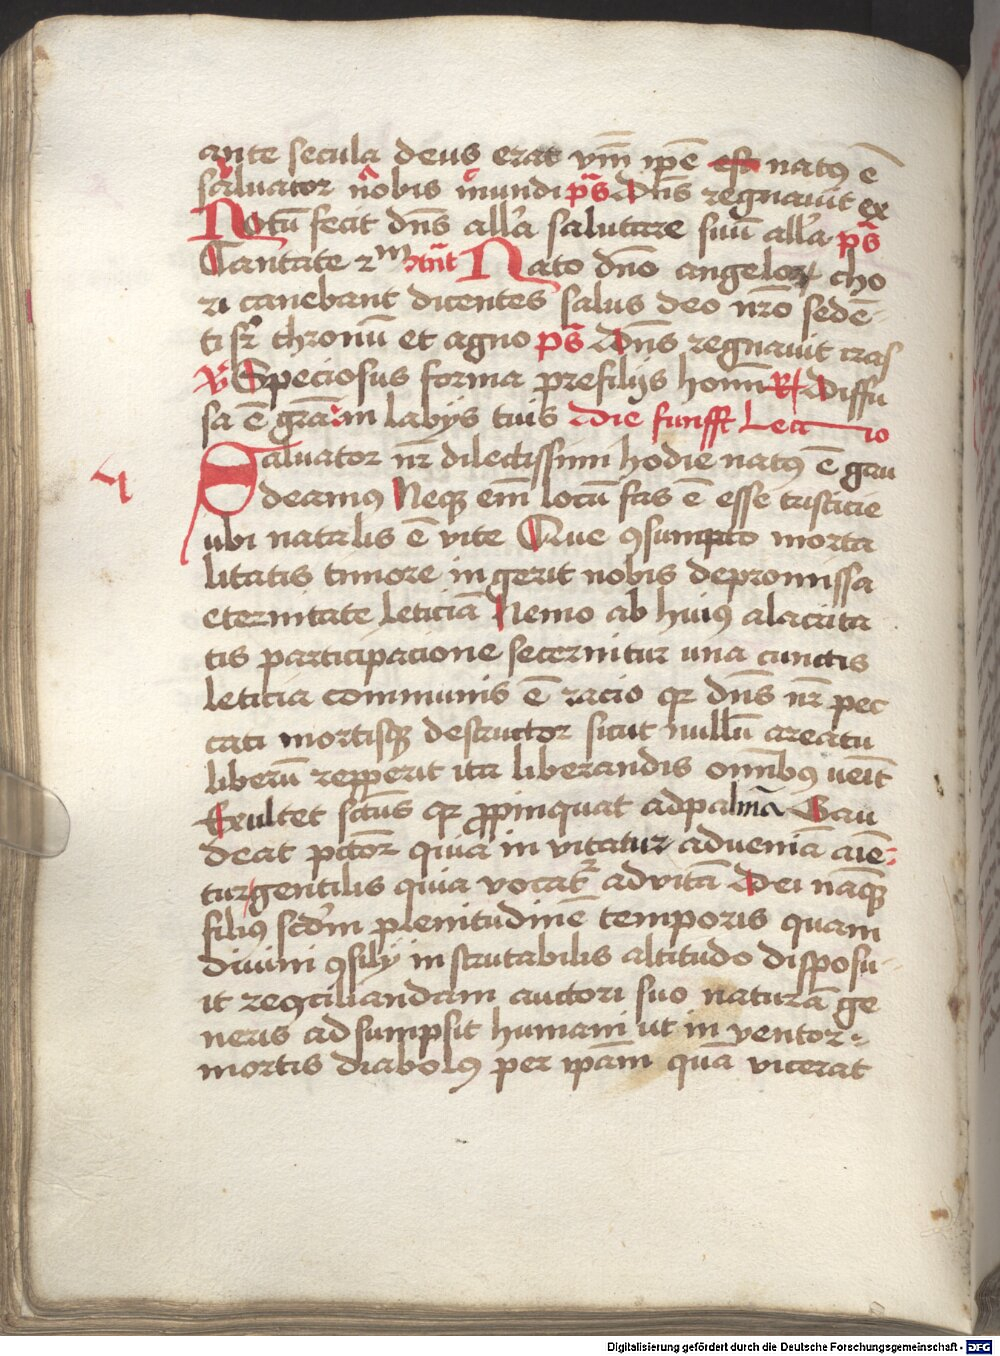 ante secula deus erat vnī ipē est natꝰ ē
saluator nobis mundi ps Dn̄s regnauit ex
Notū fecit dn̄s all'a salutare suū all'a ps
Cantate 2m Antn̄ Nato dn̄o angeloꝝ cho
ri canebant dicentes salus deo nr̄o sedē-
ti sr̄ thronū et agno ps Dn̄s regnauit cras
V Speciosus forma prefilijs homī R Diffu
sa ē grā in labijs tuis Die funfft Lectio
4
Saluator nr̄ dilectissimi hodie natꝰ ē gau
deamꝰ Neqꝫ em̄ locū fas ē esse tristicie
ubi natalis ē vite Que ꝯsumpto morta
litatis timore in gerit nobis depromissa
eternitate leticiā Nemo ab huiꝰ alacrita
tis participacione secernitur una cunctis
leticia communis ē racio qr dn̄s nr̄ pec
cati mortisqꝫ destructor sicut nullū areatu
liberū repperit ita liberandis omībꝰ ueīt
Exultet sctūs qr ꝓpinquat adpalmā Gau
deat pctōr quia in vitatur adueniā aīe-
tur gentilis quia vocatr̄ advitā Dei nāqꝫ
filiꝰ scd'm plenitudinē temporis quam
diuini ꝯsilij in scrutabilis altitudo disposu-
it reꝯciliandam auctori suo naturā ge
neris adsumpsit humani ut in ventor-
mortis diabolꝰ per ipām quā vicerat
Digitalisierung gefördert durch die Deutsche Forschungsgemeinschaft - DFG